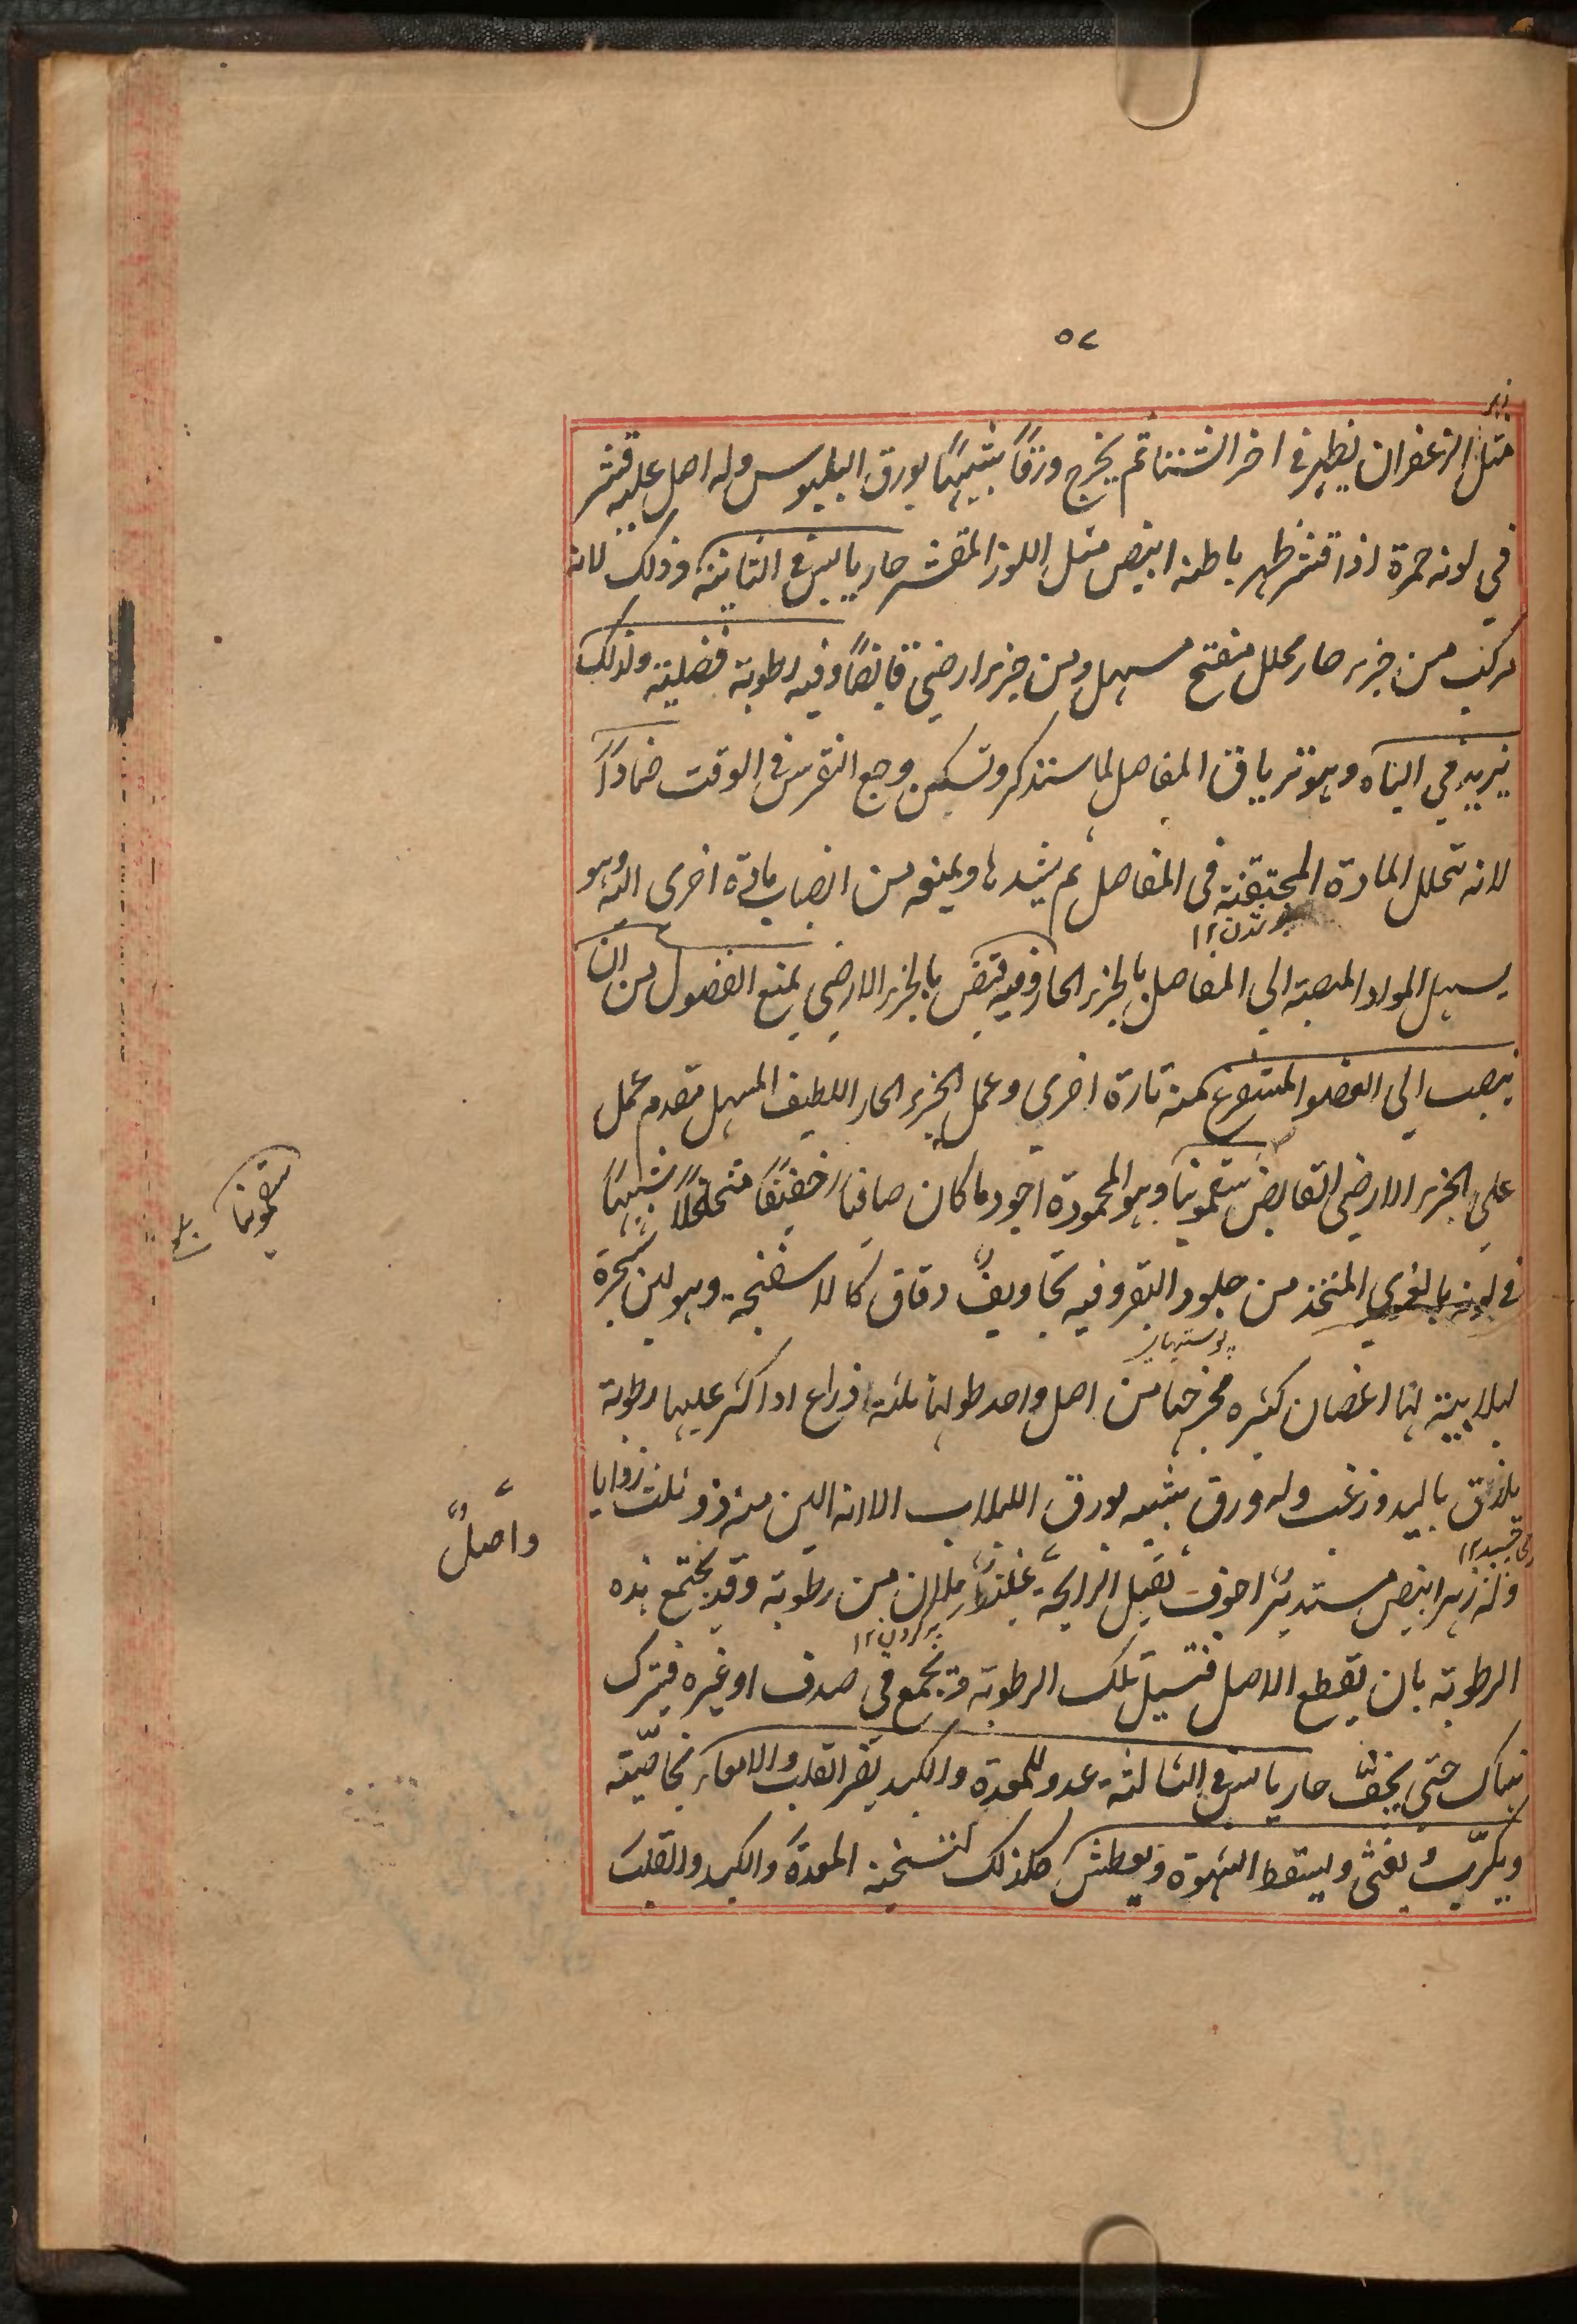 ٥٨
زهر
مثل الزعفران يظهر فى اخر الشتا ثم يخرج ورقاً شبيهاً بورق البلبوس وله اصل عليه قشر
في لونه حمرة اذا قشر ظهر باطنه ابيض مثل اللوز المقشر حار يابس فى الثانية وذلك لانه
مركب من جزء حار محلل مفتح مسهل ومن جزء ارضي قابضاً وفيه رطوبة فضلية ولذلك
يزيد في الباه وهو ترياق المفاصل لما سنذكر وتسكين وجع النقرس فى الوقت ضماداً
لانه تحلل المادة المحتقنة فى المفاصل ثم يشدها ويمنعه من انصباب مادة اخرى اليه وهو
يسهل المواد المنصبة الى المفاصل بالجزء الحار وفيه قبض بالجزء الارضي يمنع الفضول من ان
ينصب الى العضو المستفرغ منه تارة اخرى وعمل الجزء الحار اللطيف المسهل مقدم عمل
على الجزء الارضي القابض سقمونيا وهو المحمودة اجود ما كان صافيا خفيفاً متخلخلاً شبيهاً
فى لونه بالغري المتخذ من جلود البقر وفيه تجاويف دقاق كالاسفنجة وهو لبن شجرة
لبلابية لها اغصان كثيرة مخرجها من اصل واحد طولها ثلثة اذراع اذا كثر عليها رطوبة
يلتزق باليد وزغب وله ورق شبيه بورق اللبلاب الا انه الين منه ذو ثلث زوايا
وله زهر ابيض مستدير اجوف ثقيل الرايحة غليظ ملان من رطوبة وقد يجتمع هذه
الرطوبة بان يقطع الاصل فتسيل تلك الرطوبة وتجمع في صدف او غيره فيترك
هناك حتى يجف حار يابس فى الثالثة عدو للمعدة والكبد يضر القلب والامعاء بخاصيته
ويكرب ويغثى ويسقط الشهوة ويعطش كل ذلك لتسخينه المعدة والكبد والقلب
سقمونيا
واصل